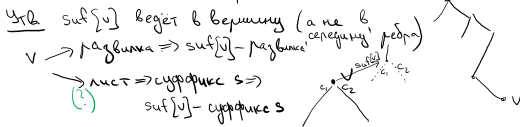 Утв suf[v] ведёт в вершину (а не в середину ребра)
v → развилка ⇒ suf[v] - развилка
→ лист ⇒ суффикс s ⇒
(?) suf[v] - суффикс s
suf[v]
v
c₁ c₂
c₁ c₂
v